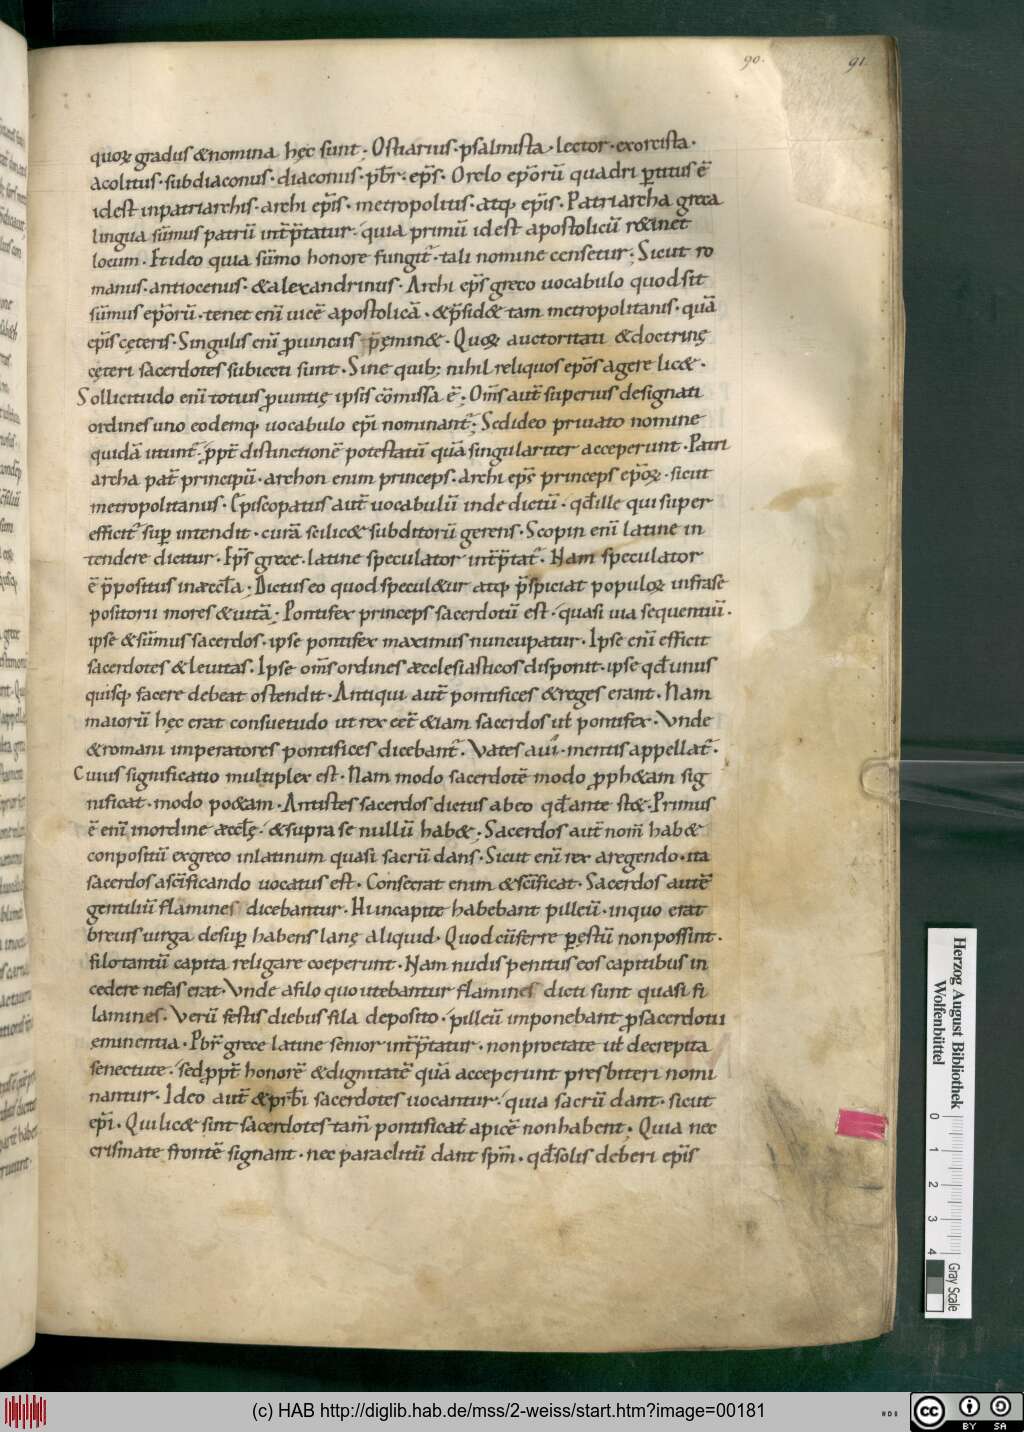 90. 91.
quoꝝ gradus & nomina hęc sunt; Ostiarius · psalmista · lector · exorcista ·
acolitus · subdiaconus · diaconus · pb̄r · ep̄s · Ordo ep̄orū quadri ꝑtitus ē
id est in patriarchis · archi ep̄is · metropolitis · atq; ep̄is · Patriarcha greca
lingua sūmus patrū int̄p̄tatur · quia primū id est apostolicū r&inet
locum · Et ideo quia sūmo honore fungit᷒ · tali nomine censetur; Sicut ro
manus · antiocenus · & alexandrinus · Archi ep̄s greco uocabulo quod sit
sūmus ep̄orū · tenet enī uicē apostolicā · & p̄sid& tam metropolitanis · quā
ep̄is cęteris · Singulis enī ꝓuinciis p̄emin& · Quoꝝ auctoritati & doctrinę
cęteri sacerdotes subiecti sunt · Sine quib; nihil reliquos ep̄os agere lic& ·
Sollicitudo enī totius ꝓuintię ipsis cōmissa ē; Om̄s aut̄ superius designati
ordines uno eodemq; uocabulo ep̄i nominant᷒; Sed ideo priuato nomine
quidā utunt᷒ · ꝓpt̄ distinctionē potestatū quā singulariter acceperunt · Patri
archa pat̄ principū · archon enim princeps · archi ep̄s princeps ep̄oꝝ · sicut
metropolitanus · Episcopatus aut̄ uocabulū inde dictū · qd̄ ille qui super
efficit᷒ sup̱ intendit · curā scilic& subditorū gerens · Scopin enī latine in
tendere dicitur · Ep̄s grece · latine speculator int̄p̄tat᷒ · Nam speculator
ē p̄positus in æccl̄a · Dictus eo quod specul&ur atq; p̄spiciat populoꝝ infra se
positorū mores & uitā; Pontifex princeps sacerdotū est · quasi uia sequentiū ·
ipse & sūmus sacerdos · ipse pontifex maximus nuncupatur · Ipse enī efficit
sacerdotes & leuitas · Ipse om̄s ordines æcclesiasticos disponit · ipse qd̄ unus
quisq; facere debeat ostendit · Antiqui aut̄ pontifices & reges erant · Nam
maiorū hęc erat consuetudo ut rex eet̄ & iam sacerdos ut̄ pontifex · Vnde
& romani imperatores pontifices dicebant᷒ · Vates a ui · mentis appellat᷒ ·
Cuius significatio multiplex est · Nam modo sacerdotē modo ꝓph&am sig
nificat · modo po&am · Antistes sacerdos dictus ab eo qd̄ ante st& · Primus
ē enī in ordine æccl̄ę · & supra se nullū hab&; Sacerdos aut̄ nom̄ hab&
conpositū ex greco in latinum quasi sacrū dans · Sicut enī rex a regendo · ita
sacerdos a sc̄ificando uocatus est · Consecrat enim & sc̄ificat · Sacerdos autē
gentiliū flamines dicebantur · Hi in capite habebant pilleū · in quo erat
breuis uirga desup̱ habens lanę aliquid · Quod cū ferre ꝑ ęstū non possint ·
filo tantū capita religare coeperunt · Nam nudis penitus eos capitibus in
cedere nefas erat · Vnde a filo quo utebantur flamines dicti sunt quasi fi
lamines · Verū festis diebus fila deposito · pilleū imponebant ꝓ sacerdotii
eminentia · Pbr̄ grece latine senior int̄p̄tatur · non pro etate ut̄ decrepita
senectute · sed ꝓpt̄ honorē & dignitatē quā acceperunt presbiteri nomi
nantur · Ideo aut̄ & prb̄i sacerdotes uocantur · quia sacrū dant · sicut
ep̄i · Qui lic& sint sacerdotes tam̄ pontificat̄ apicē non habent · Quia nec
crismate frontē signant · nec paraclitū dant sp̄m · qd̄ solis deberi ep̄is
Herzog August Bibliothek
Wolfenbüttel
0 1 2 3 4
Gray Scale
(c) HAB http://diglib.hab.de/mss/2-weiss/start.htm?image=00181
cc BY SA